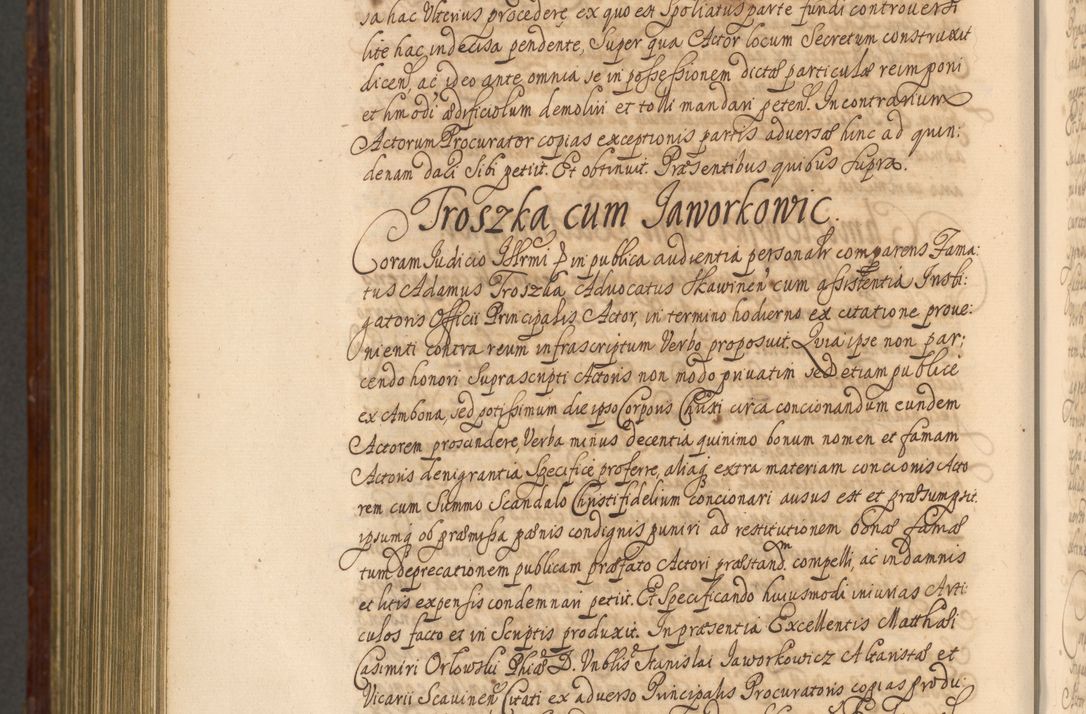 sa hac Ulterius procedere, ex quo est Spoliatus parte fundi controversi
lite hac indecisa pendente, Super qua Actor locum Secretum construxit
dicen, ac ideo ante omnia se in possessionem dictæ particulæ reimponi
et hmodi ædificiolum demoliri et tolli mandari peten. In contrarium
Actorum Procurator copias exceptionis partis adversæ hinc ad quin:
denam dari Sibi petiit. Et obtinuit. Præsentibus quibus supra.
Troszka cum Jaworkowic.
Coram Judicio Illrmi in publica audientia personalr comparens Fama:
tus Adamus Troszka Advocatus Skawinen cum assistentia Insti:
gatoris Officii Principalis Actor, in termino hodierno ex citatione prove:
nienti contra reum infrascriptum Verbo proposuit. Quia ipse non par:
cendo honori Suprascripti Actoris non modo privatim sed etiam publice
ex Ambona, sed potissimum die ipso Corporis Christi circa concionandum eundem
Actorem proscindere, Verba minus decentia quinimo bonum nomen et famam
Actoris denigrantia Specifice proferre, aliaq extra materiam concionis Acto
rem cum Summo Scandalo Christifidelium concionari ausus est et præsumpsit.
ipsumq ob præmissa pænis condignis puniri ad restitutionem bonæ famæ
tum deprecationem publicam præfato Actori præstandm compelli, ac in damnis
et litis expensis condemnari petiit. Et Specificando huiusmodi iniurias Arti:
culos facto et in Scriptis produxit. In præsentia Excellentis Matthæi
Casimiri Orlowski Phiæ D. Vnblis Stanislai Jaworkowicz Altaristæ et
Vicarii Scavinen Citati ex adverso Principalis Procuratoris copias produ: